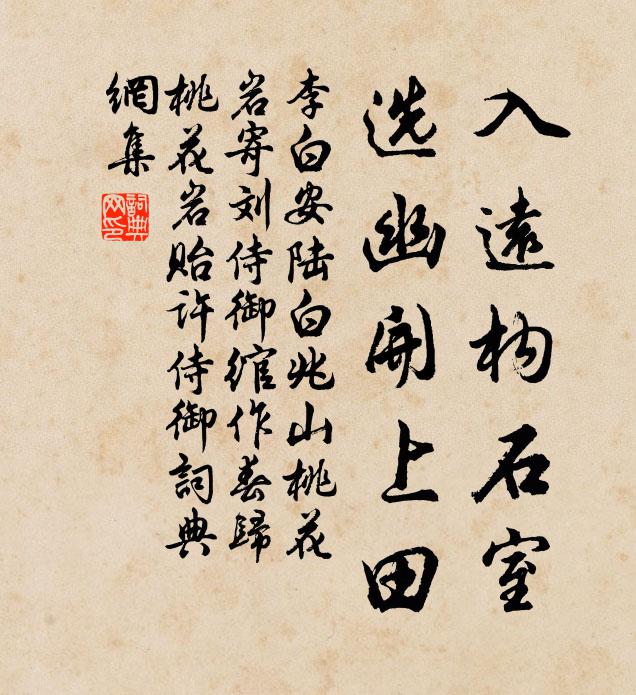 入遠构石室
选幽開上田
李白安陆白兆山桃花
岩寄刘侍御綰作春歸
桃花岩贻许侍御詞典
網集
詞典
网印